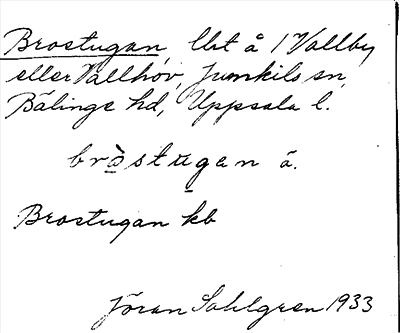 Brostugan, lht å 1 Vallby
eller Vallhov, Jumkils sn,
Bälinge hd, Uppsala l.
bròstugan ä.
Brostugan kb
Jöran Sahlgren 1933